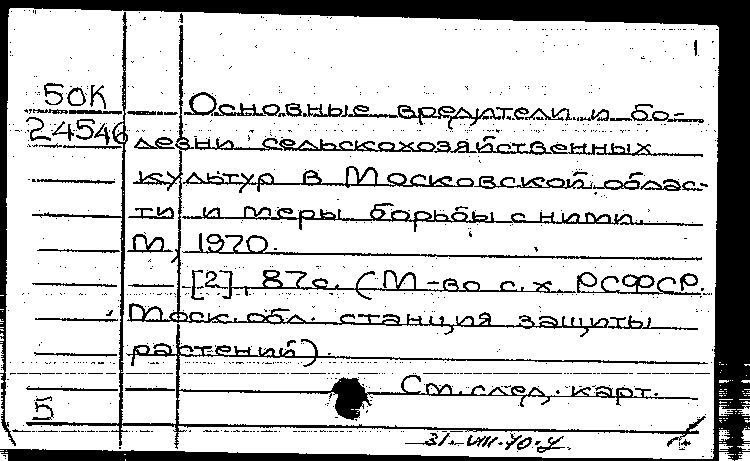 1
50К
24546
Основные вредители и бо-
лезни сельскохозяйственных
культур в Московской облас-
ти и меры борьбы с ними.
М, 1970.
[2], 87с. (М-во с. х. РСФСР.
Моск. обл. станция защиты
растений)
См. след. карт.
5